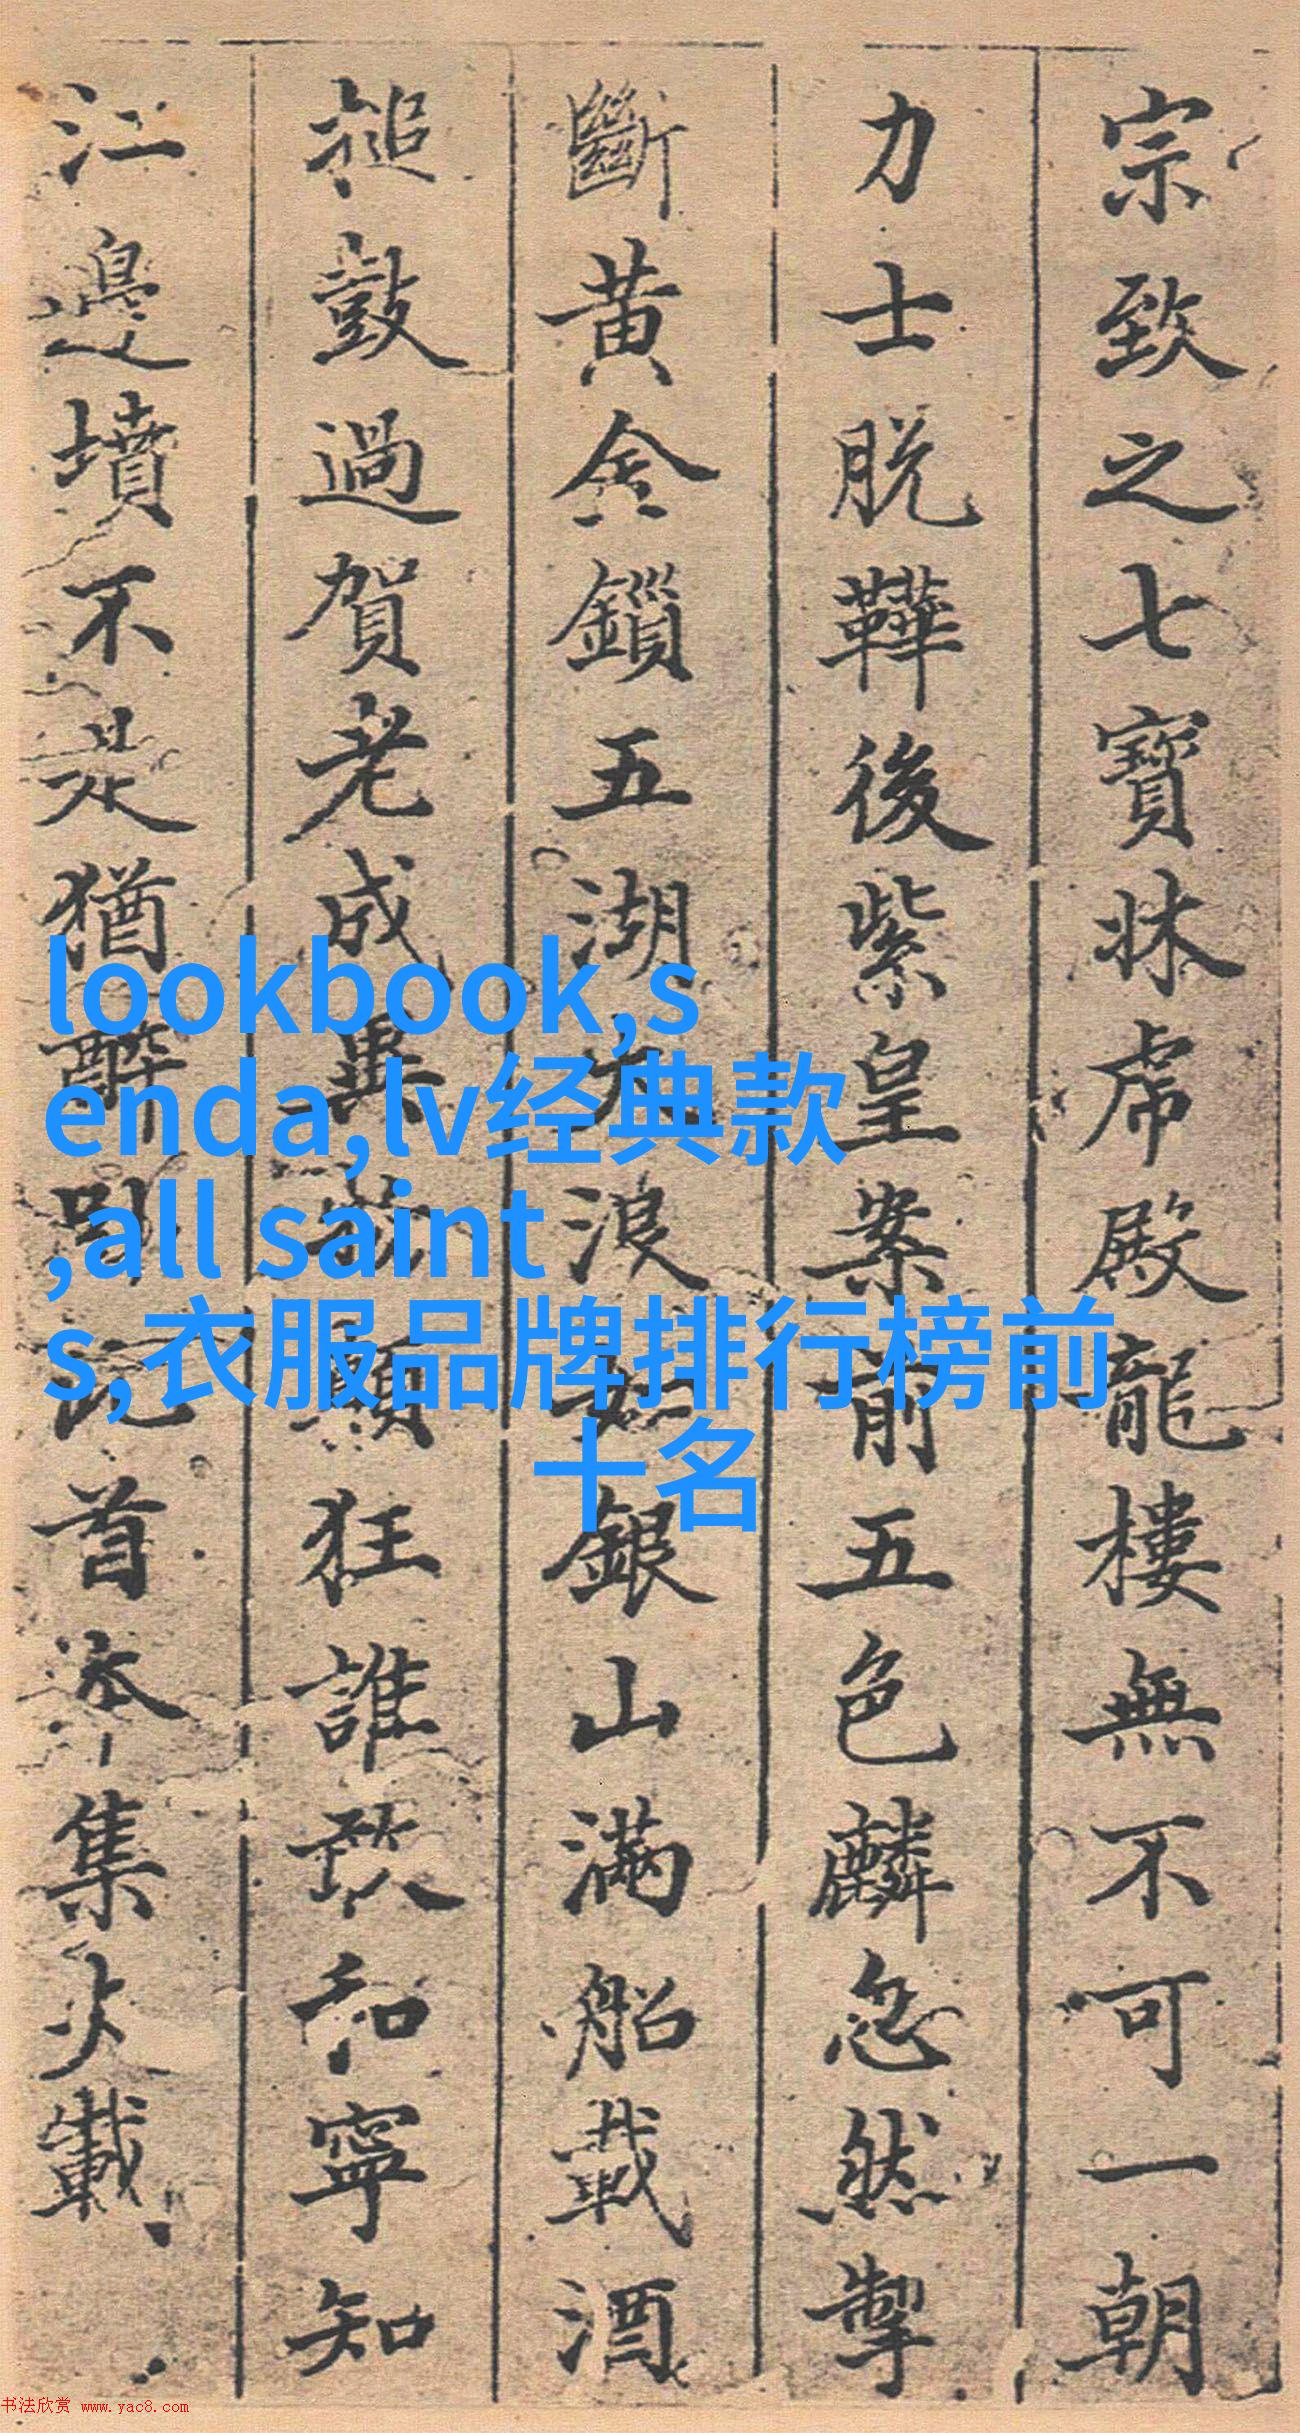 宗致之七寶牀虎殿龍樓無不可一朝
力士脫鞾後紫皇案前五色麟忽然掣
斷黃金鎖五湖大浪如銀山滿船載酒
搥鼓過賀老成異物顛狂誰敢和寧知
江邊墳不是猶醉卧此首本集載
lookbook,s
enda,lv经典款
,all saint
s,衣服品牌排行榜前
十名
书法欣赏 www.yac8.com